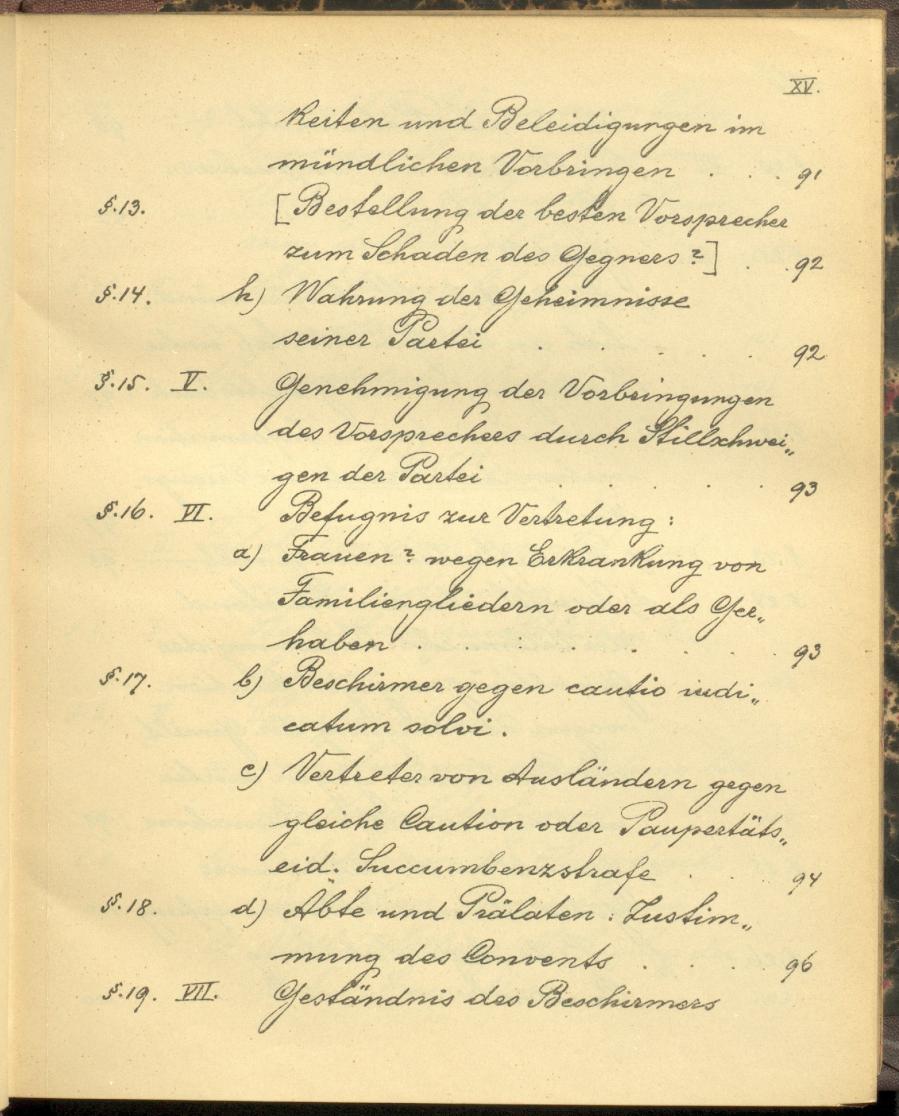 XV.
keiten und Beleidigungen im
mündlichen Vorbringen . . . 91
§.13. [Bestellung der besten Vorsprecher
zum Schaden des Gegners?] . . 92
§.14. h) Wahrung der Geheimnisse
seiner Partei . . . . . 92
§.15. V. Genehmigung der Vorbringungen
des Vorsprechers durch Stillschwei„
gen der Partei . . . . 93
§.16. VI. Befugnis zur Vertretung:
a) Frauen? wegen Erkrankung von
Familiengliedern oder als Ger„
haben . . . . . . 93
§.17. b) Beschirmer gegen cautio iudi„
catum solvi.
c) Vertreter von Ausländern gegen
gleiche Caution oder Paupertäts„
eid. Succumbenzstrafe . . . 94
§.18. d) Äbte und Prälaten: Zustim„
mung des Convents . . . . 96
§.19. VII. Geständnis des Beschirmers